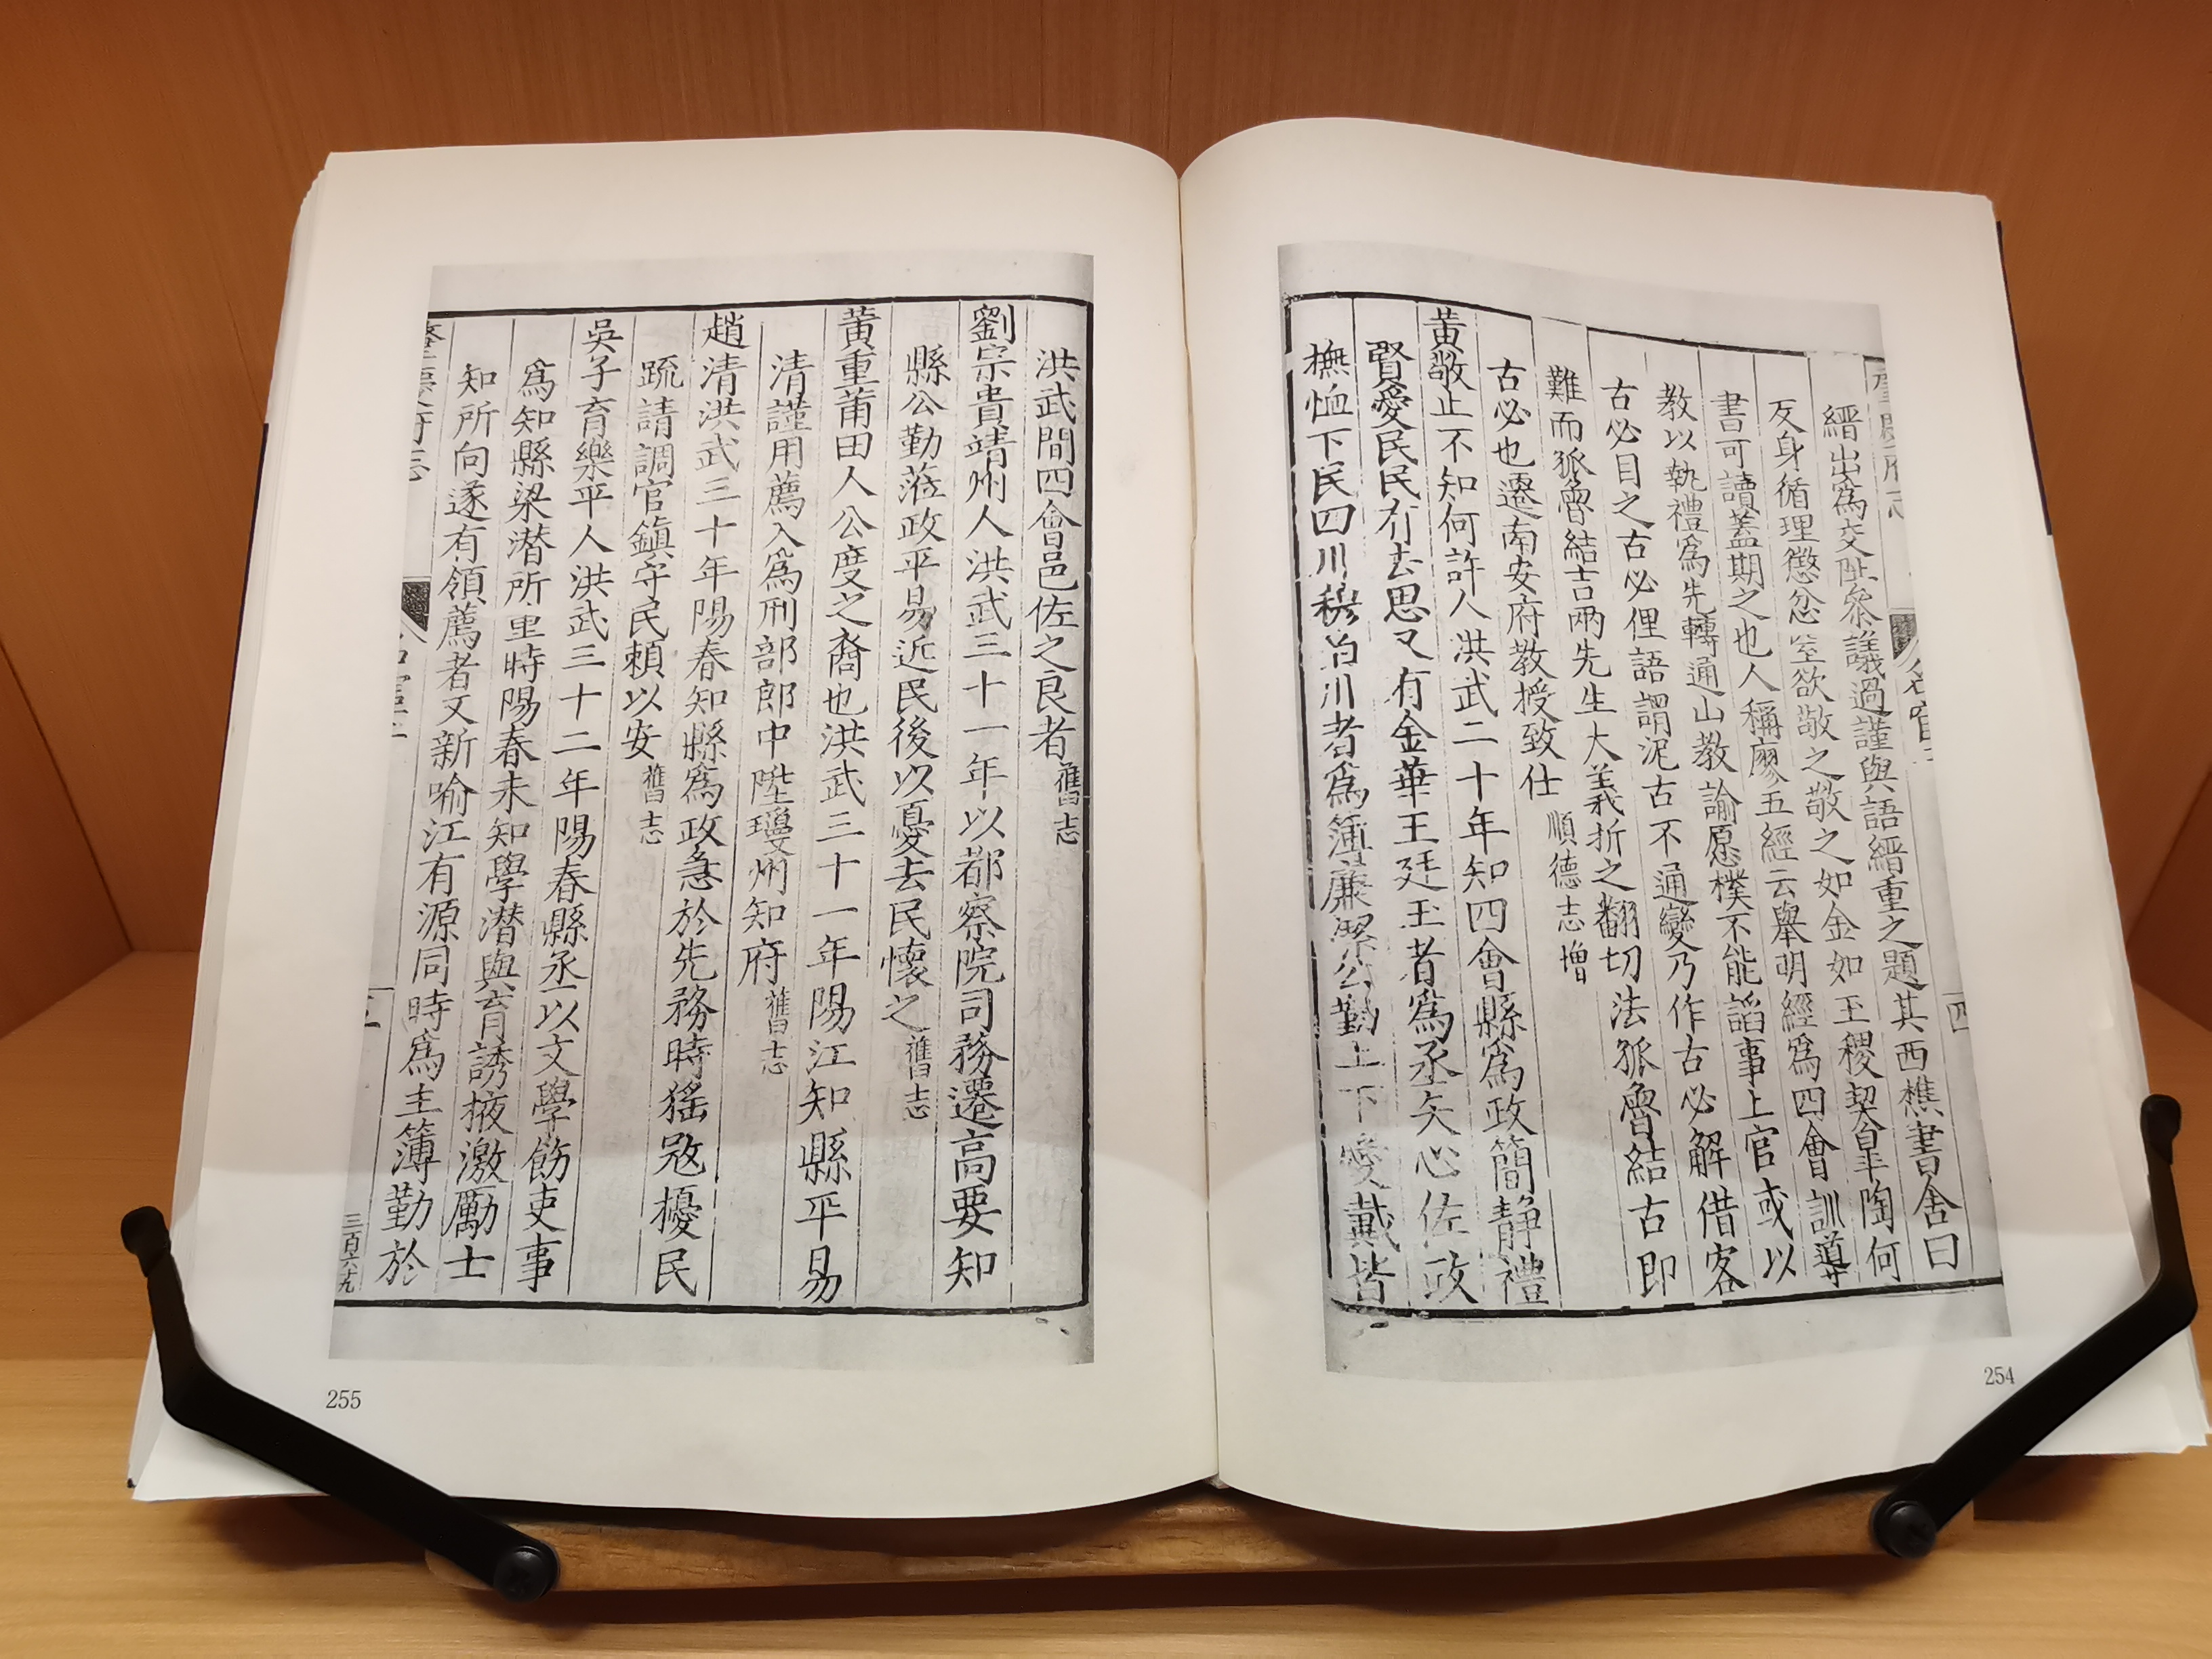 縉出爲交阯叅議過謹與語縉重之題其西樵書舍曰
反身循理懲忿窒欲敬之敬之如金如玉稷契皐陶何
書可讀蓋期之也人稱廖五經云舉明經爲四會訓導
教以執禮爲先轉通山教諭愿樸不能謟事上官或以
古必目之古必俚語謂泥古不通變乃作古必解借客
難而狐魯結吉兩先生大義折之翻切法狐魯結古即
古必也遷南安府教授致仕 順德志增
黃敬止不知何許人洪武二十年知四會縣爲政簡靜禮
賢愛民民有去思又有金華王廷玉者爲丞矢心佐政
撫恤下民四川 川者爲簿廉 公勤上下愛戴皆
四
254
洪武間四會邑佐之良者 舊志
劉宗貴靖州人洪武三十一年以都察院司務遷高要知
縣公勤蒞政平易近民後以憂去民懷之 舊志
黃重莆田人公度之裔也洪武三十一年陽江知縣平易
清謹用薦入爲刑部郎中陞瓊州知府 舊志
趙清洪武三十年陽春知縣爲政急於先務時猺冦擾民
䟽請調官鎮守民頼以安 舊志
吳子育樂平人洪武三十二年陽春縣丞以文學飭吏事
爲知縣梁潛所里時陽春未知學潛與育誘掖激勵士
知所向遂有領薦者文新喻江有源同時爲主簿勤於
三百六九
255